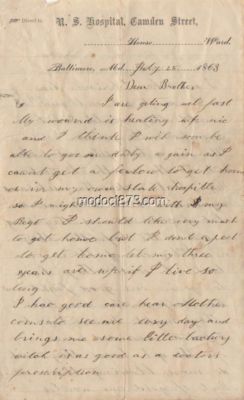 U. S. Hospital, Camden Street,
House Ward.
Baltimore, Md. July 25 1863
Dear Brother
I am geting all fast
My wound is healing up nic
and I think I will soon be
able to go on duty again as I
cannot get a furlow to get home
or in my own State
so I might
modoc1873.com
my
Regt I should like very much
to get home but I dont expect
to get home till my three
years are up if I live so
long
I hav good care hear Mother
coms to see me every day and
brings me some bitter
witch is as good as a doctors
prescription